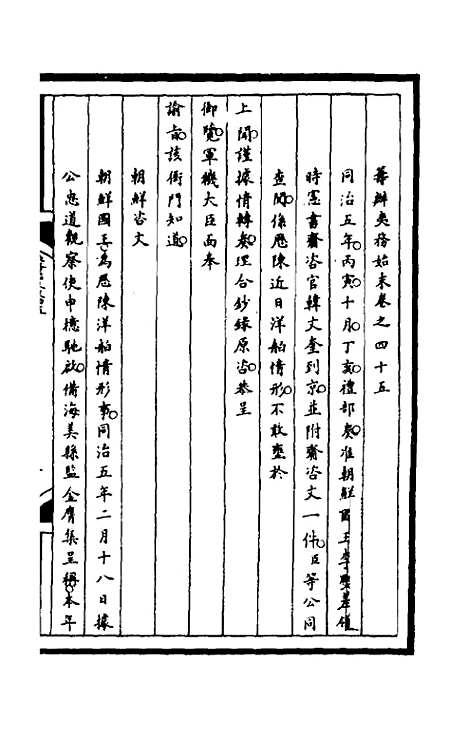 籌辦夷務始末卷之四十五
同治五年丙寅十月丁亥禮部奏准朝鮮國王李熙差
時憲書齎咨官韓文奎到京並附齎咨文一件臣等公同
查閱係歷陳近日洋舶情形不敢壅於
上聞謹據情轉奏理合鈔錄原咨恭呈
御覽軍機大臣面奉
諭旨該衙門知道
朝鮮咨文
朝鮮國王為歷陳洋舶情形事同治五年二月十八日據
公忠道觀察使申檍馳啟備海美縣監金膺集呈稱本年